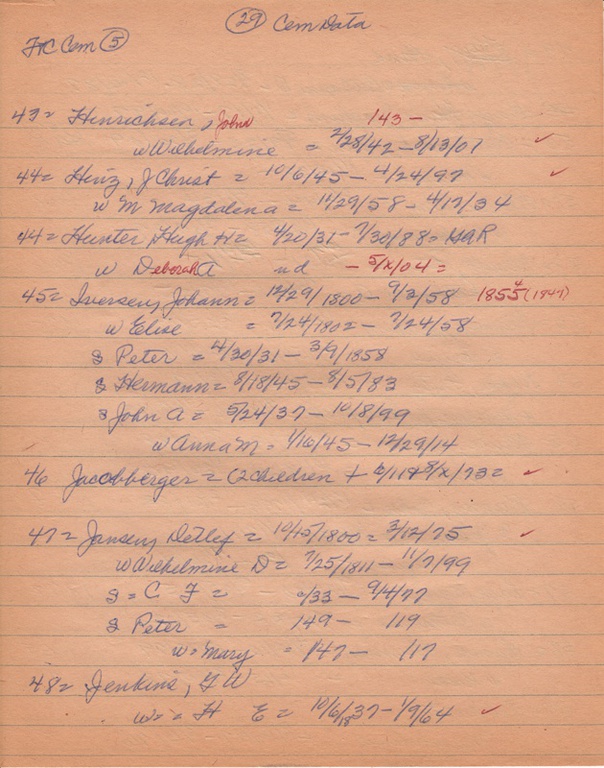 (29) Cem Data
Cem (5)
43 = Hinrichsen, John 143 -
w Wilhelmine = 2/28/42 - 8/13/07 ✓
44 = Hinz, J Christ = 10/6/45 - 4/24/97 ✓
w M Magdalena = 11/29/58 - 4/17/34
44 = Hunter, Hugh H = 4/20/31 - 7/30/88 = GAR
w Deborah A nd - 5/X/04 =
45 = Iversen, Johann = 12/29/1800 - 9/3/58 (1847)
w Elise = 7/24/1802 - 7/24/58
s Peter = 4/30/31 - 3/9/1858
s Hermann = 8/18/45 - 8/5/83
s John A = 5/24/37 - 10/8/99
w Anna M = 1/16/45 - 12/29/14
46 Jacobberger = (2 children + 8/X/73 = ✓
47 = Jansen, Detlef = 1800 = 3/12/75 ✓
w Wilhelmine D = 7/25/1811 - 11/7/99
s = C F = /33 - 9/4/77
s Peter = 149 - 119
w = Mary = 147 - 117
48 = Jenkins, G W
w = = H E = 10/6/1837 - 1/9/64 ✓